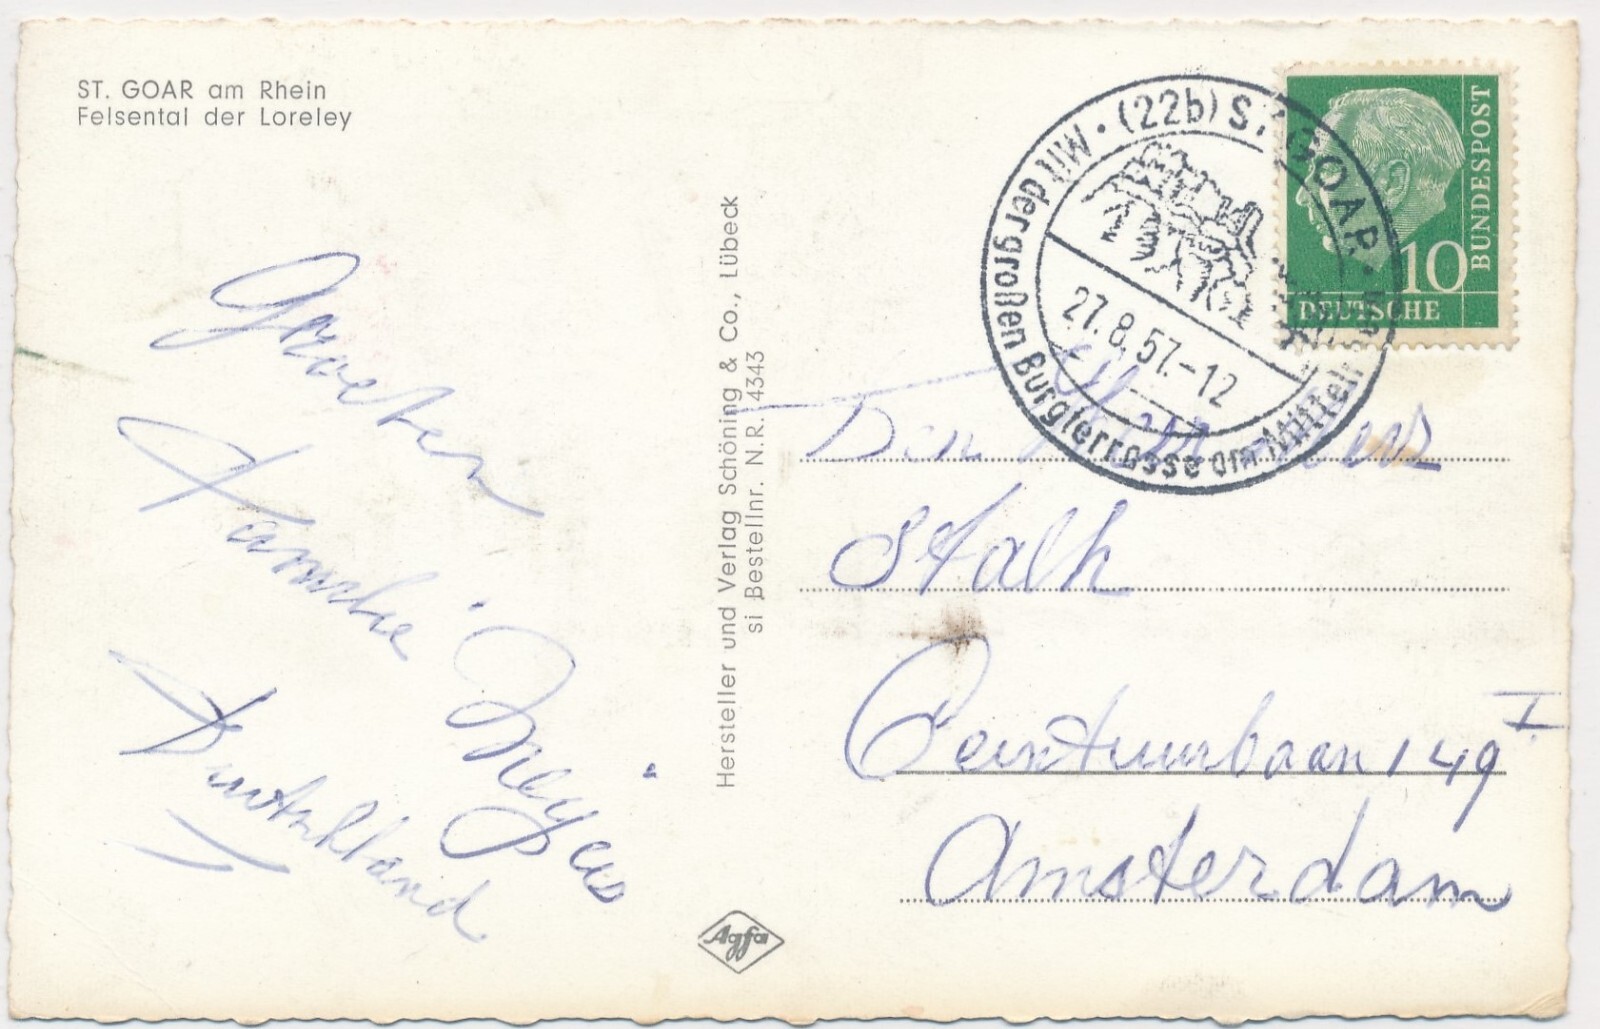 ST. GOAR am Rhein
Felsental der Loreley
Groeten
Familie
Meyer
Duitschland
Hersteller und Verlag Schöning & Co., Lübeck
si Bestellnr. N.R. 4343
Agfa
(22b) ST. GOAR · Mit der großen Burgterrasse am Mittelr
27.8.57.-12
DEUTSCHE
BUNDESPOST
10
Den
Stalk
Ceintuurbaan 149 I
Amsterdam